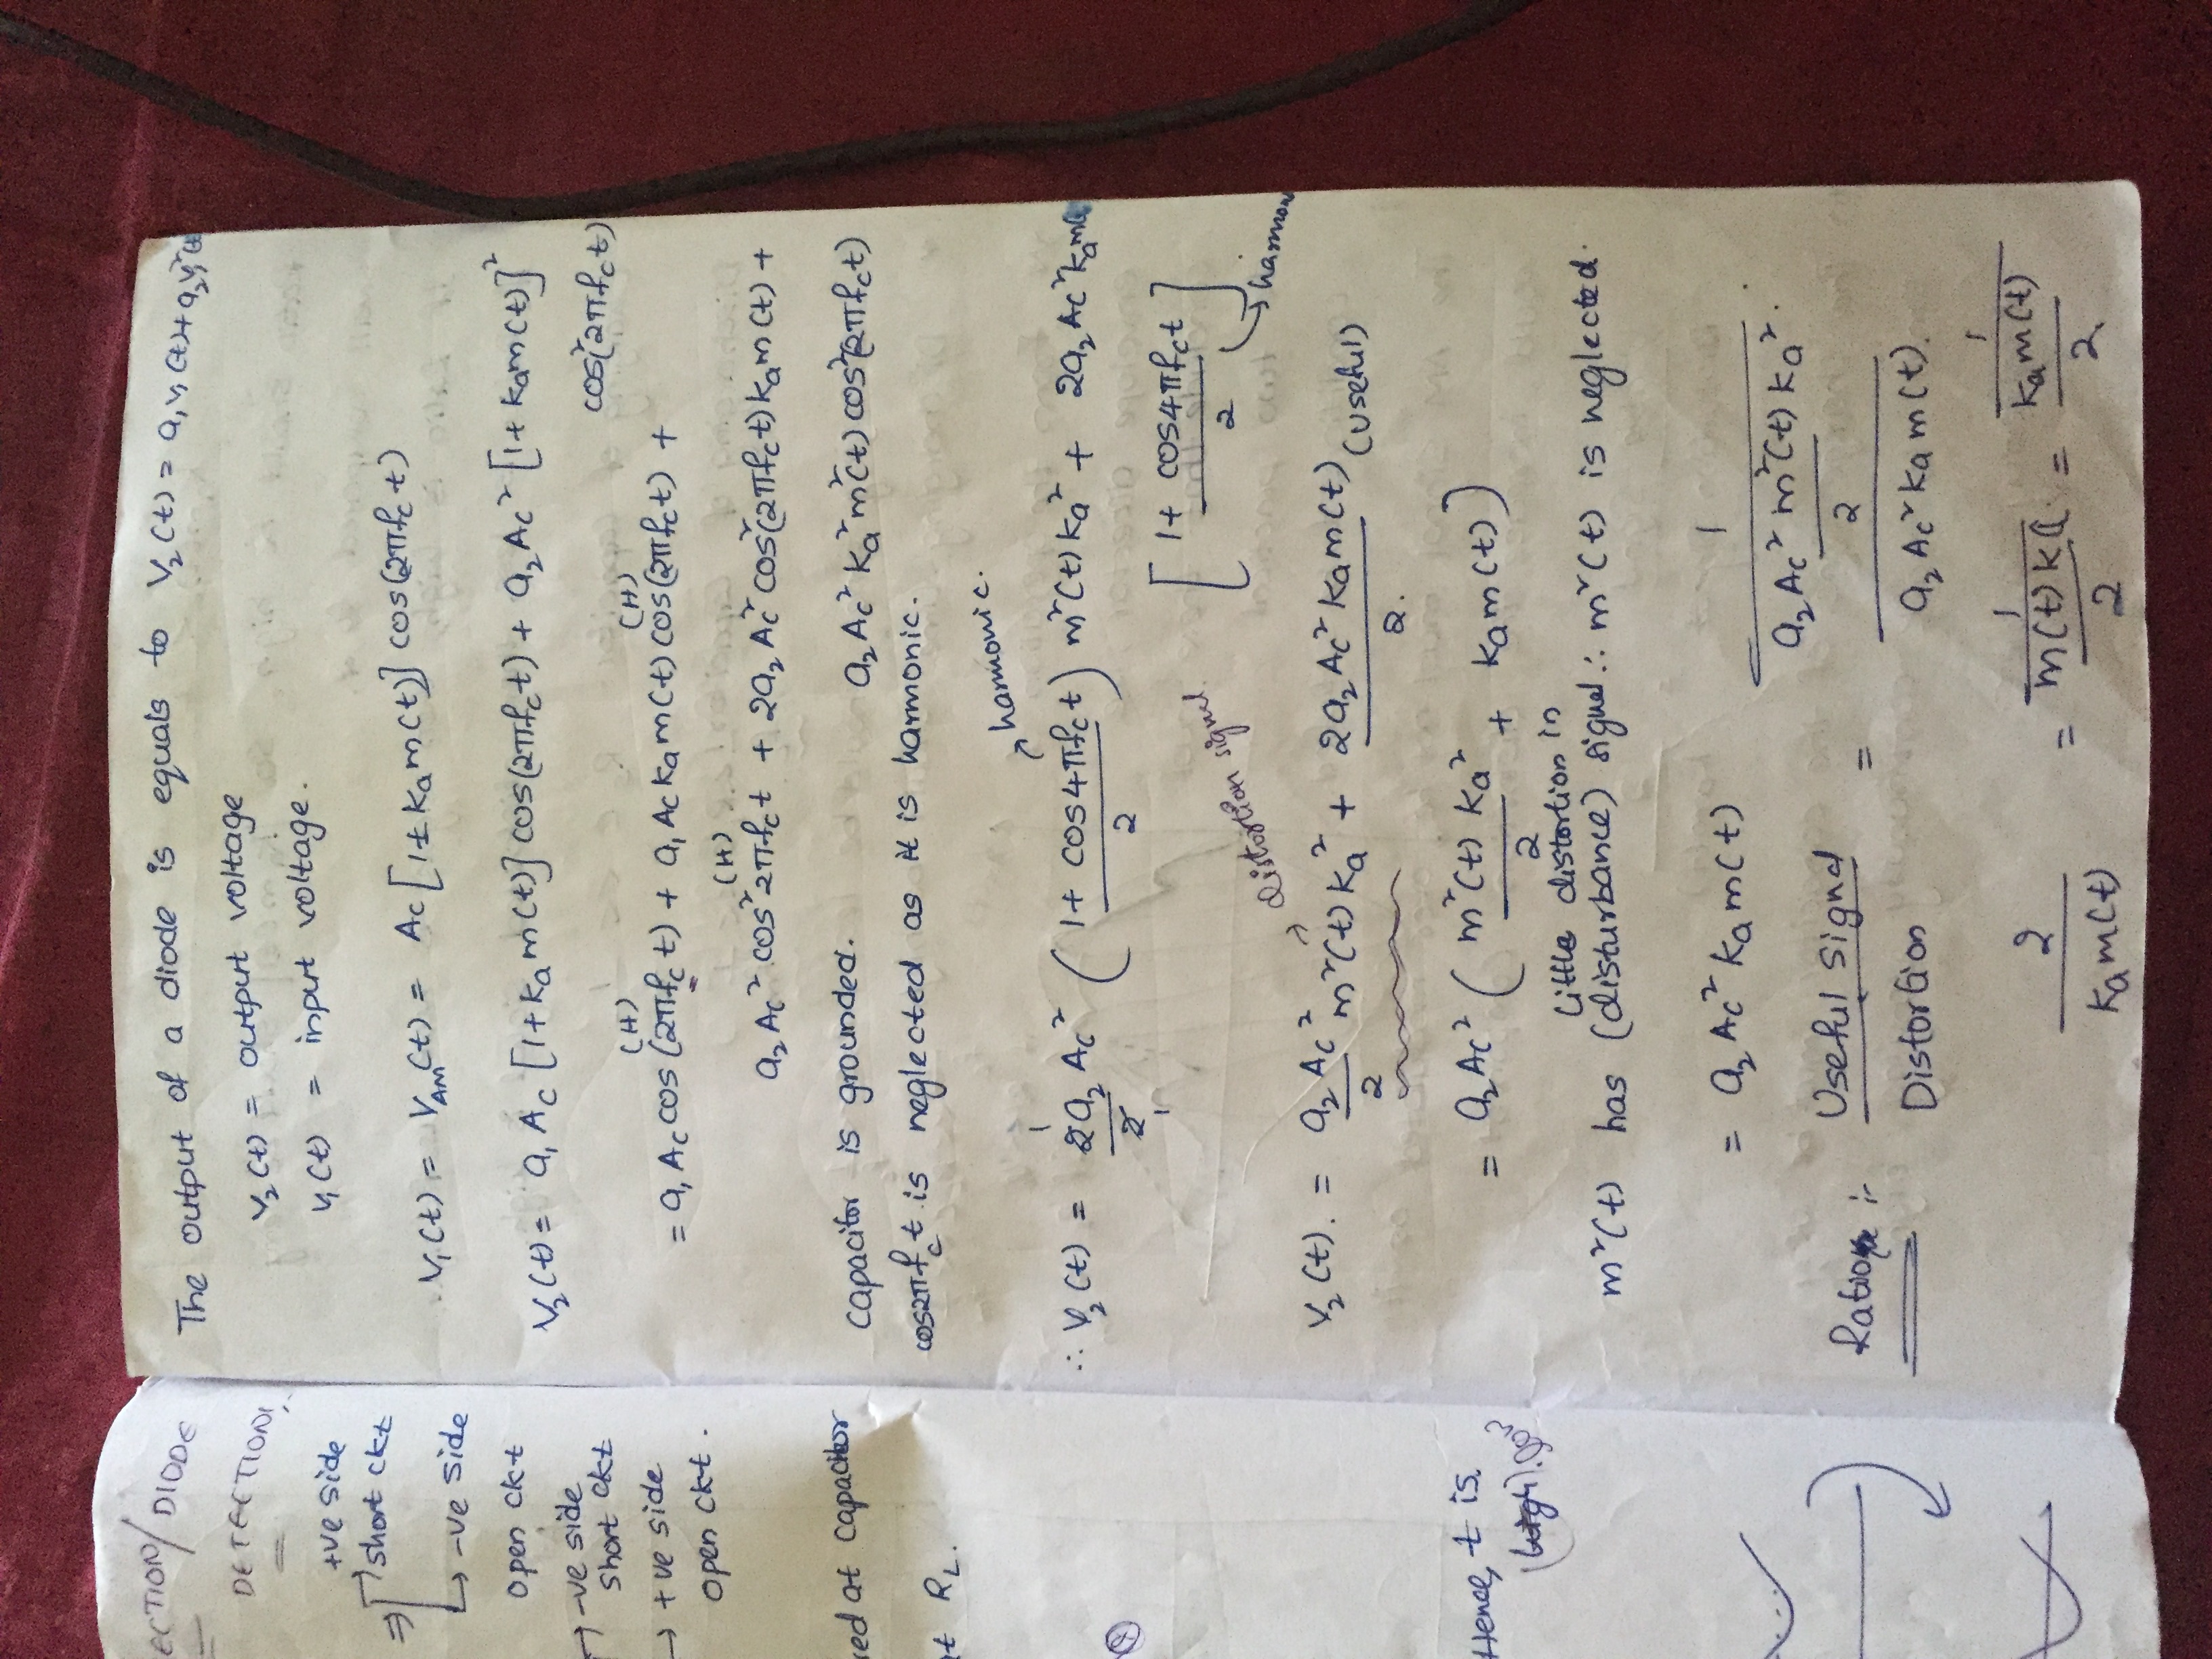 ECTION/ DIODE
DETECTION:
+ve side
⇒ short ckt
-ve side
open ckt
→ -ve side
short ckt
→ +ve side
open ckt.
red at capacitor
at RL.
Hence, t is
(high). low
The output of a diode is equals to V₂(t) = a₁v₁(t) + a₂v₁²(t
V₂(t) = output voltage
V₁(t) = input voltage.
V₁(t) = V_AM(t) = Ac [1+kₐm(t)] cos(2πfct)
V₂(t) = a₁Ac [1+kₐm(t)] cos(2πfct) + a₂Ac² [1+kₐm(t)]²
cos²(2πfct)
(H) (H)
= a₁Ac cos(2πfct) + a₁Ackₐm(t) cos(2πfct) +
(H)
a₂Ac² cos²2πfct + 2a₂Ac²cos²(2πfct)kₐm(t) +
capacitor is grounded. a₂Ac²kₐ²m²(t)cos²(2πfct)
cos2πfct is neglected as it is harmonic.
harmonic.
1
∴ V₂(t) = 2a₂/2 Ac² (1+cos4πfct/2) m²(t)kₐ² + 2a₂Ac²kₐm(
1
[1+cos4πfct/2]
harmon
distortion signal.
V₂(t). = a₂Ac²/2 m²(t)kₐ² + 2a₂Ac²kₐm(t)/2. (useful)
= a₂Ac² (m²(t)kₐ²/2 + kₐm(t))
little distortion in
m²(t) has (disturbance) signal ∴ m²(t) is neglected.
= a₂Ac²kₐm(t)
Ratio :- Useful signal/Distortion = 1/(a₂Ac²m²(t)kₐ²/2 / a₂Ac²kₐm(t)).
2/kₐm(t) = 1/(m(t)kₐ/2) = 1/(kₐm(t)/2)